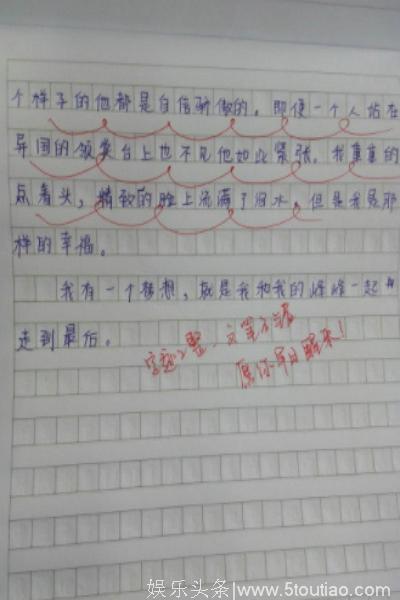 个样子的他都是自信骄傲的。即便一个人站在
异国的领奖台上也不见他如此紧张。我重重的
点着头，精致的脸上流满了泪水。但是我是那
样的幸福。
我有一个梦想，就是我和我的峰峰一起
走到最后。
字迹工整，文笔不错
愿你早日醒来！
娱乐头条
www.5toutiao.com